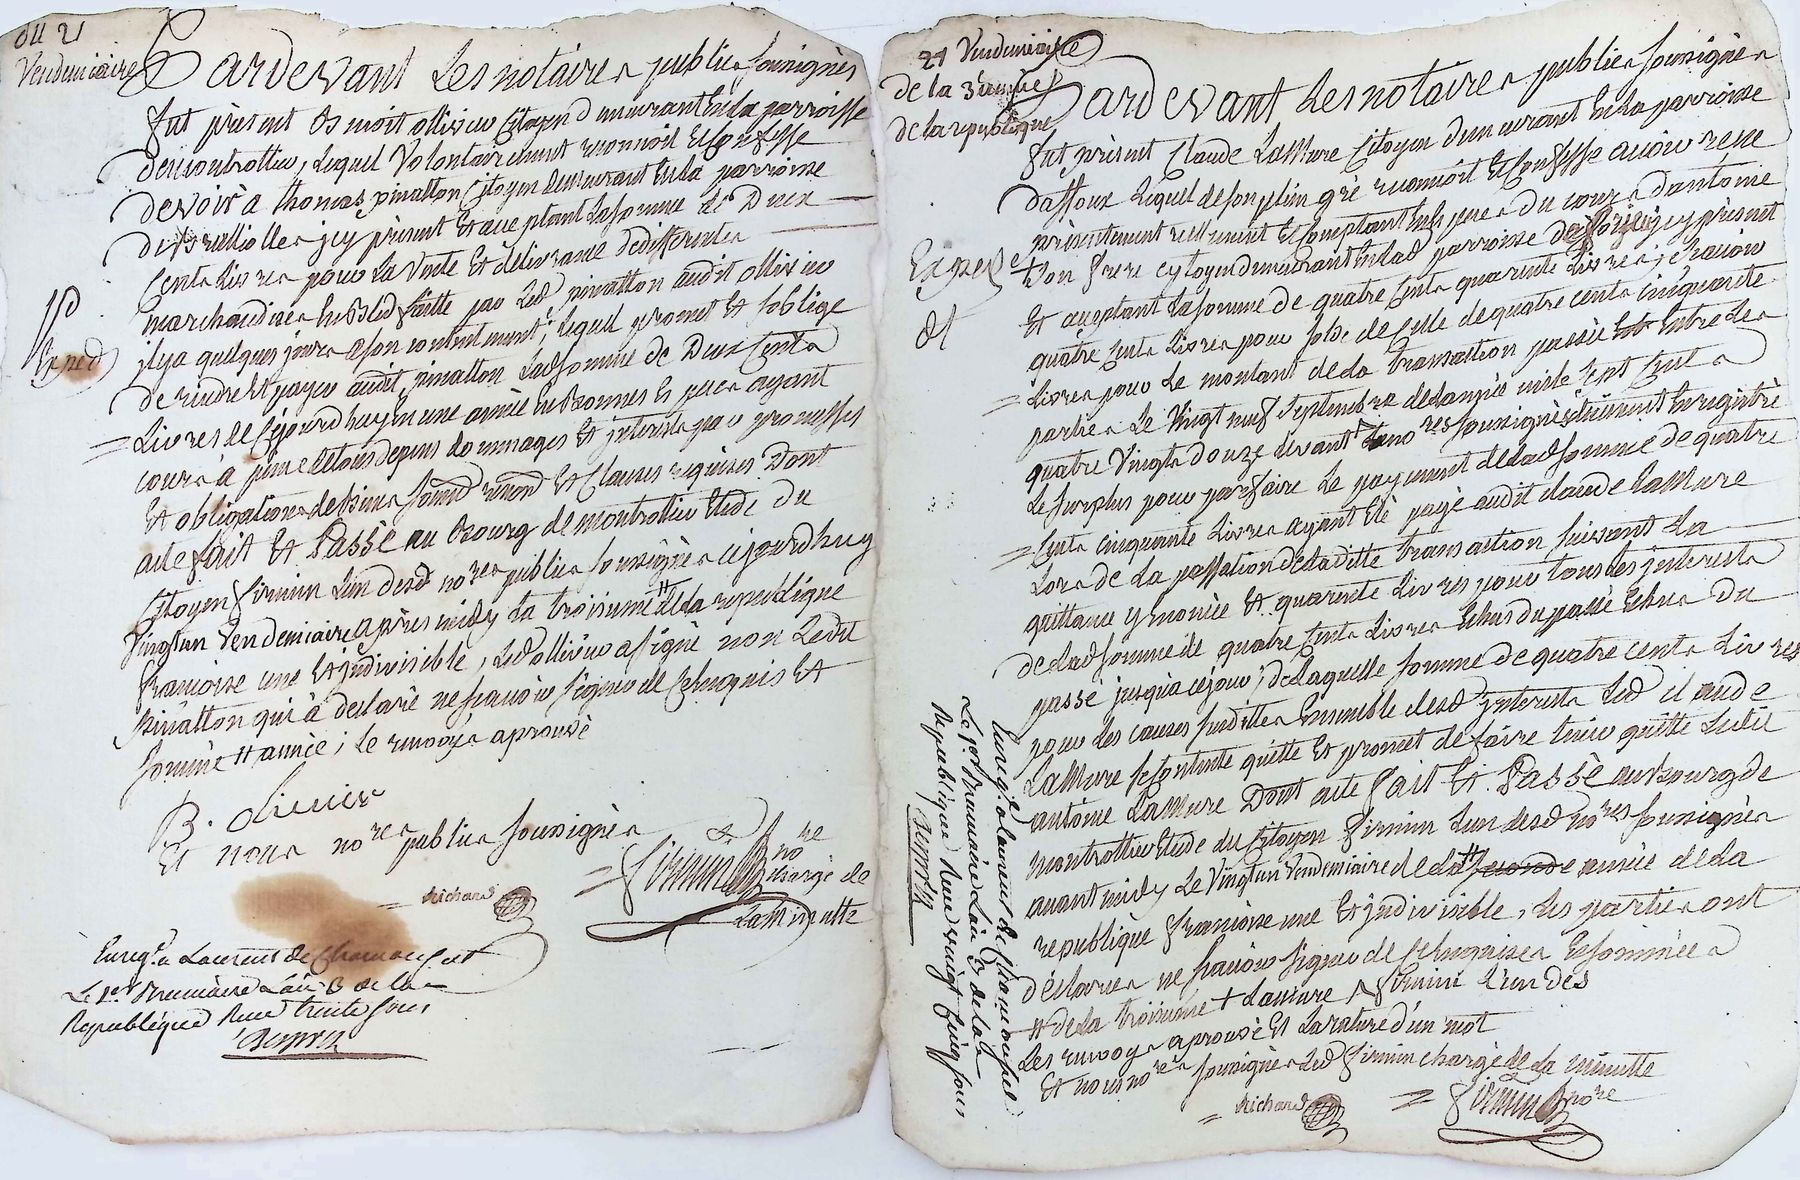 ou 21
Vendemiaire
Pardevant Les notaires publics soussignés
fut présent Benoit ollivier Citoyen demeurant En la parroisse
de montrottier, Lequel Volontairement reconnoit Et Confesse
devoir à thomas pinatton Citoyen demeurant En la parroisse
icy présent Et acceptant La somme de Deux
Cents Livres pour La Vente Et délivrance de differentes
marchandises faitte par Led pinatton audit ollivier
il ya quelques jours a son contentement; Lequel promet Et soblige
de rendre Et payer audit pinatton Lad somme de Deux Cents
Livres de cejourdhuy en une année En Bonnes Espèces ayant
cours à peine Et tous depens dommages Et interests par promesses
Et obligations de Biens soumd renond Et Clauses requises Dont
acte fait Et Passé au Bourg de montrottier Etude du
Citoyen firmin L'un desd nores publics soussignés cejourdhuy
Vingtun Vendemiaire après midy La troisieme # de La republique
francoise une Et indivisible, Led ollivier a signé non Ledit
pinatton qui à declaré ne scavoir signer de Ce Enquis Et
sommé # année; Le renvoy aprouvé
B. olivier
Et nous nores publics soussignés
firmin nore
chargé de
La Minutte
Richard
Exped
Enregé a Laurent de Chamousset
Le 1er Brumaire L'an 3 de la
Republique Reçu trente sous
21 Vendemiaire
de la 3 année
de la republique
Pardevant Les notaires publics soussignés
fut présent Claude LaMure Citoyen demeurant En la parroisse
daffoux Lequel de son plein gré reconnoit Et Confesse avoir recu
présentement reellement Et Comptant En Especes du cours dantoine
+ son frere cytoyen demeurant En lad parroisse icy présent
Et acceptant La somme de quatre Cents quarente Livres; scavoir
quatre Cents Livres pour solde de Celle de quatre cents cinquante
Livres pour Le montant de la transaction passée Entre Les
parties Le Vingt neuf septembre de Lannée mile sept Cent
quatre Vingts douze devant Les nores soussignés duement Enregistré
Le surplus pour parfaire Le payement de Lad somme de quatre
Cents cinquante Livres ayant Eté payé audit claude LaMure
Lors de La passation de Laditte transaction suivant La
quittance y Enoncée Et quarente Livres pour tous Les interests
de Lad somme de quatre Cents Livres Echus du passé Echus Du
passé jusqua ce jour; de Laquelle somme de quatre cents Livres
pour Les causes susdittes Ensemble desd interests Led Claude
LaMure se Contente quitte Et promet de faire tenir quitte Ledit
antoine LaMure Dont acte fait Et Passé au Bourg de
montrottier Etude du Citoyen firmin L'un desd nores soussignés
avant midy Le Vingtun Vendemiaire de La # seconde année de La
republique francoise une Et indivisible, Les parties ont
déclarés ne scavoir signer de Ce Enquises Et sommées
# de La troisieme + Lamure firmin L'un des
Les renvoys aprouvé Et La rature d'un mot
Et nous nores soussignés Led firmin chargé de La minutte
Richard
firmin nore
Exped
Enregé a Laurent de chamousset
Le 1er Brumaire L'an 3 de la
Republique Reçu vingt cinq sous